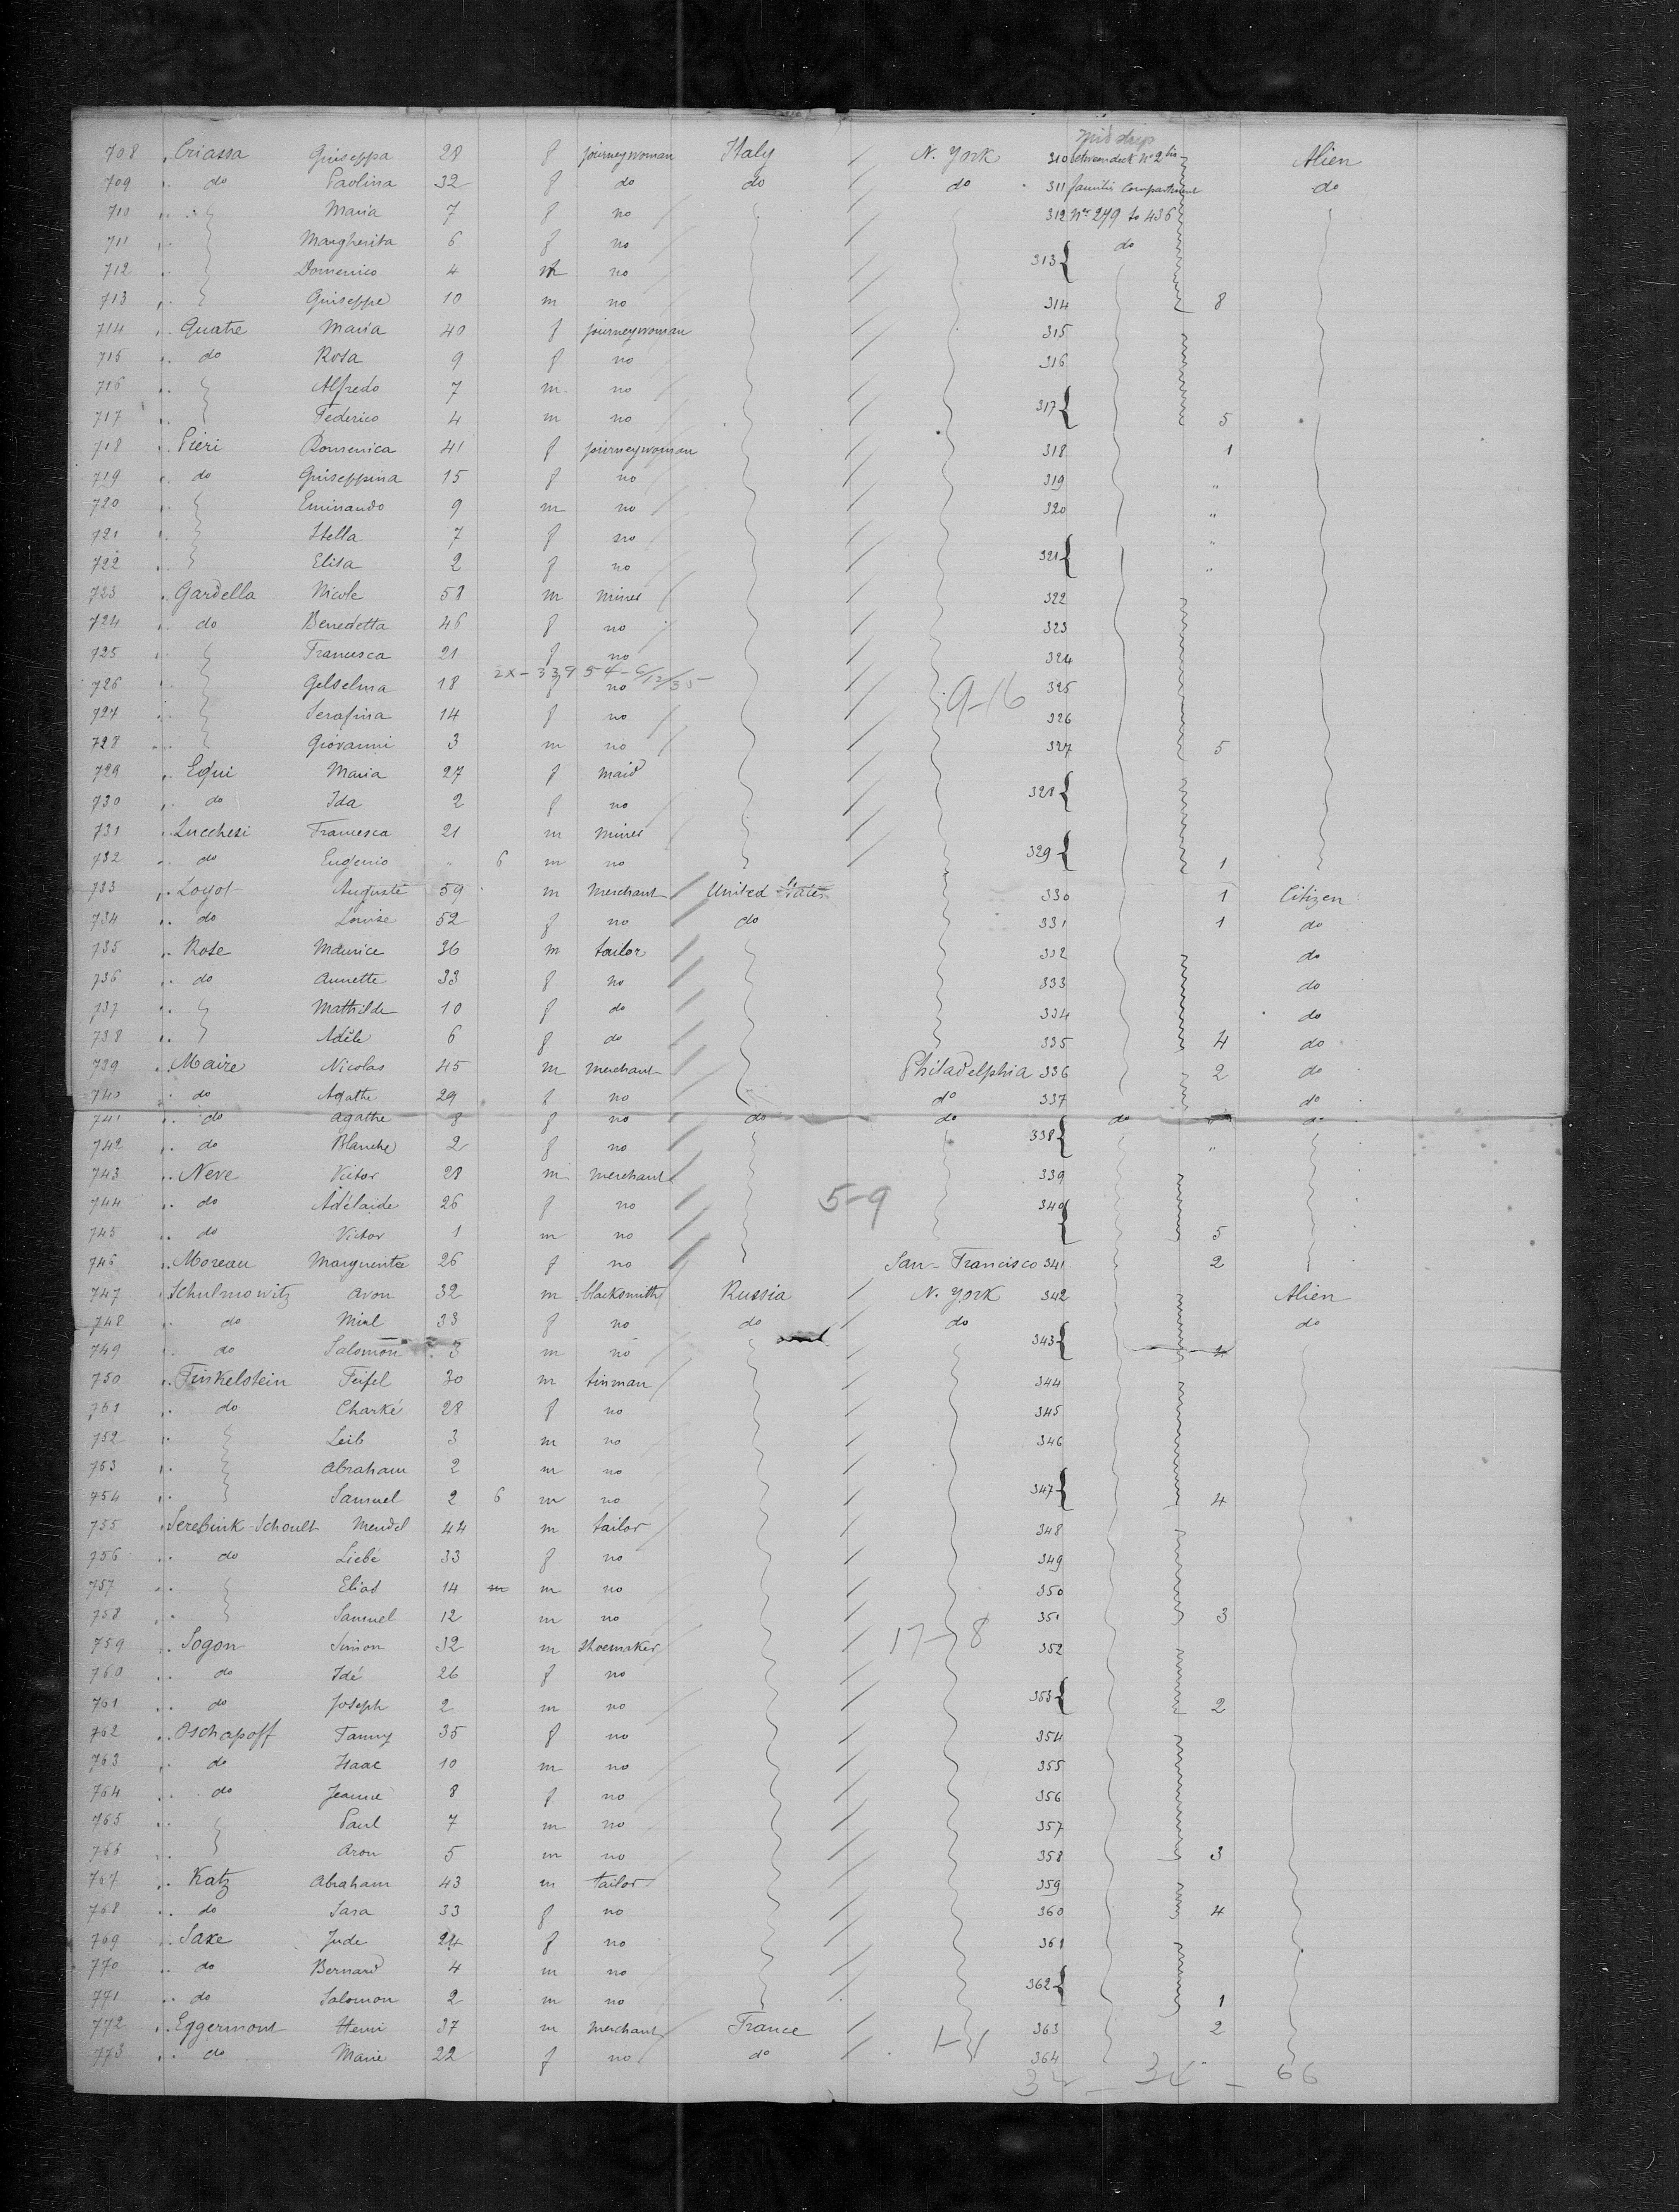 Mid ship
708 " Criassa Giuseppa 28 f journeywoman Italy / N. York 310 betweendeck No 2 bis Alien
709 " do Paolina 32 f do do / do 311 familis Compartment do
710 " Maria 7 f no / 312 Nos 279 to 436
711 " Margherita 6 f no / 313 { do
712 " Domenico 4 m no /
713 " Giuseppe 10 m no / 314 8
714 " Quatre Maria 40 f journeywoman / 315
715 " do Rosa 9 f no / 316
716 " Alfredo 7 m no / 317 {
717 " Federico 4 m no / 5
718 " Pieri Domenica 41 f journeywoman / 318 1
719 " do Giuseppina 15 f no / 319 "
720 " Eminando 9 m no / 320 "
721 " Stella 7 f no / 321 { "
722 " Elisa 2 f no / "
723 " Gardella Nicole 58 m miner / 322
724 " do Benedetta 46 f no / 323
725 " Francesca 21 f no / 324
2X-33954-6/12/35
726 " Gelselina 18 f no / 9-16 325
727 " Serafina 14 f no / 326
728 " Giovanni 3 m no / 327 5
729 " Equi Maria 27 f maid / 328 {
730 " do Ida 2 f no /
731 " Lucchesi Francesca 21 m miner / 329 {
732 " do Eugenio " 6 m no / 1
733 " Loyot Auguste 59 m merchant / United States 330 1 Citizen
734 " do Louise 52 f no / do 331 1 do
735 " Rose Maurice 36 m tailor / 332 do
736 " do Annette 33 f no / 333 do
737 " Mathilde 10 f do / 334 do
738 " Adèle 6 f do / 335 4 do
739 " Maire Nicolas 45 m merchant / Philadelphia 336 2 do
740 " do Agathe 29 f no / do 337 do
741 " do Agathe 8 f no / do do 338 { do do
742 " do Blanche 2 f no / "
743 " Neve Victor 28 m merchant / 339
744 " do Adélaide 26 f no / 5-9 340 {
745 " do Victor 1 m no / 5
746 " Moreau Marguerite 26 f no / San-Francisco 341 2
747 " Schulmowitz Aron 32 m blacksmith Russia / N. York 342 Alien
748 " do Mirl 33 f no do do 343 { do
749 " do Salomon 3 m no / 4
750 " Finkelstein Feifel 30 m tinman / 344
751 " do Charké 28 f no / 345
752 " Leib 3 m no / 346
753 " Abraham 2 m no / 347 {
754 " Samuel 2 6 m no / 4
755 " Serebink-Schoult Mendel 44 m tailor / 348
756 " do Liebé 33 f no / 349
757 " Elias 14 m m no / 350
758 " Samuel 12 m no / 351 3
759 " Sogon Simon 32 m shoemaker / 17-8 352
760 " do Idé 26 f no / 353 {
761 " do Joseph 2 m no / 2
762 " Oschapoff Fanny 35 f no / 354
763 " do Isaac 10 m no / 355
764 " do Jeanne 8 f no / 356
765 " Paul 7 m no / 357
766 " Aron 5 m no / 358 3
767 " Katz Abraham 43 m tailor / 359
768 " do Sara 33 f no / 360 4
769 " Saxe Jude 24 f no / 361
770 " do Bernard 4 m no / 362 {
771 " do Salomon 2 m no / 1
772 " Eggermont Henri 37 m merchant France / 363 2
773 " do Marie 22 f no do / 1-1 364
66